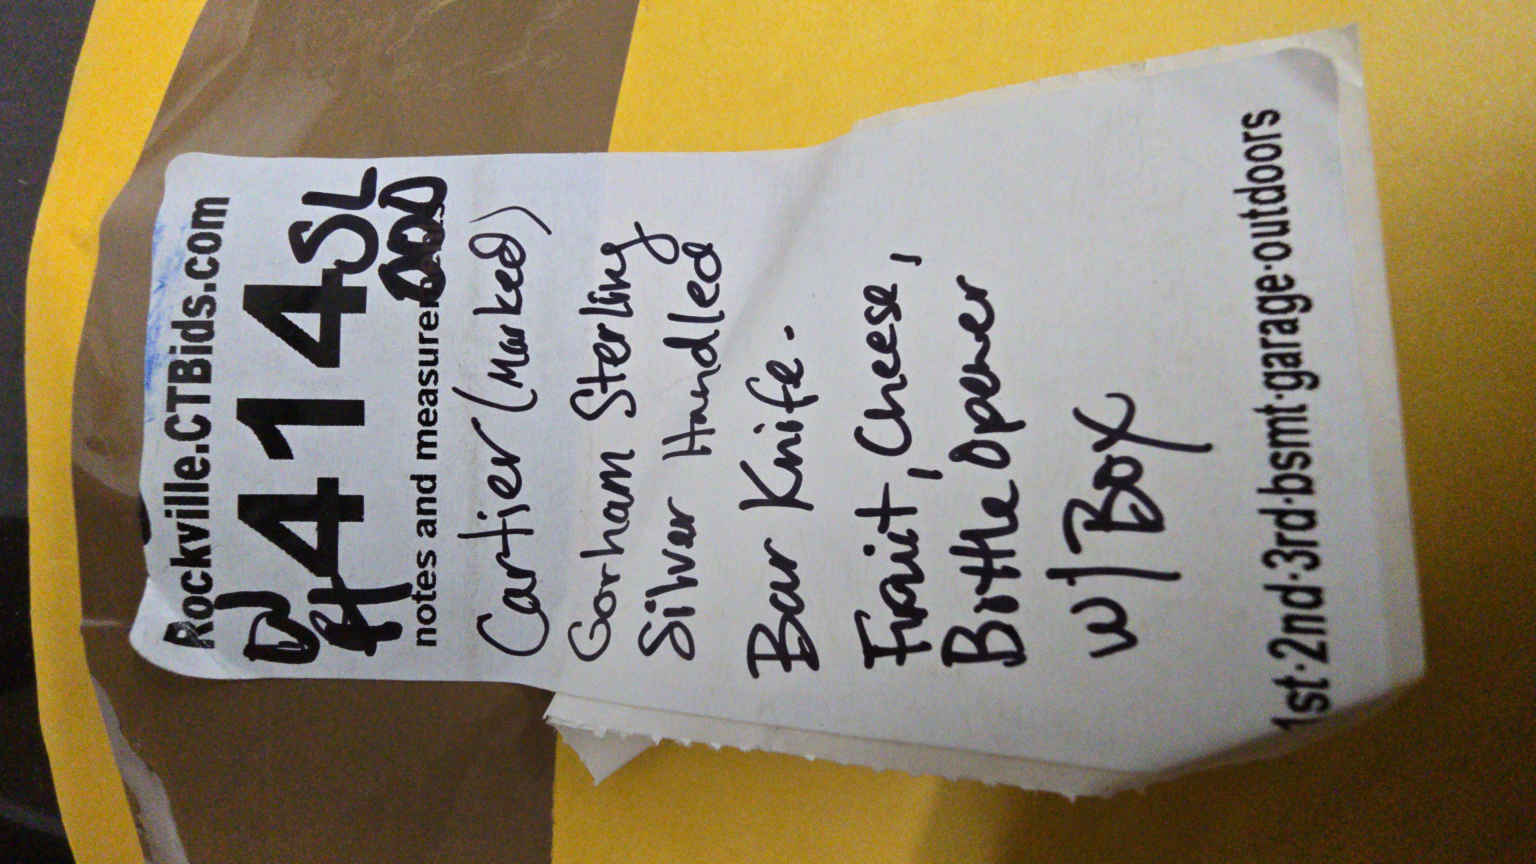 Rockville.CTBids.com
DJ 4114 SL
notes and
Cartier (Marked)
Gorham Sterling
Silver Handled
Bar Knife.
Fruit, Cheese,
Bottle Opener
w/ Box
1st·2nd·3rd·bsmt·garage·outdoors